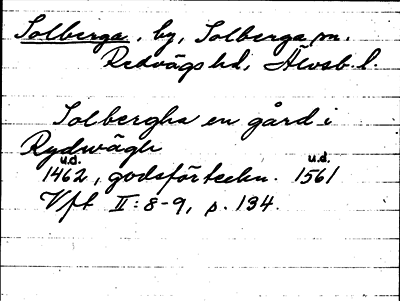 Solberga, by, Solberga sn.
Redvägs hd, Älvsb. l.
Solbergha en gård i
Rydwægh
u.d. u.d.
1462, godsförteckn. 1561
Vft II: 8-9, p. 134.